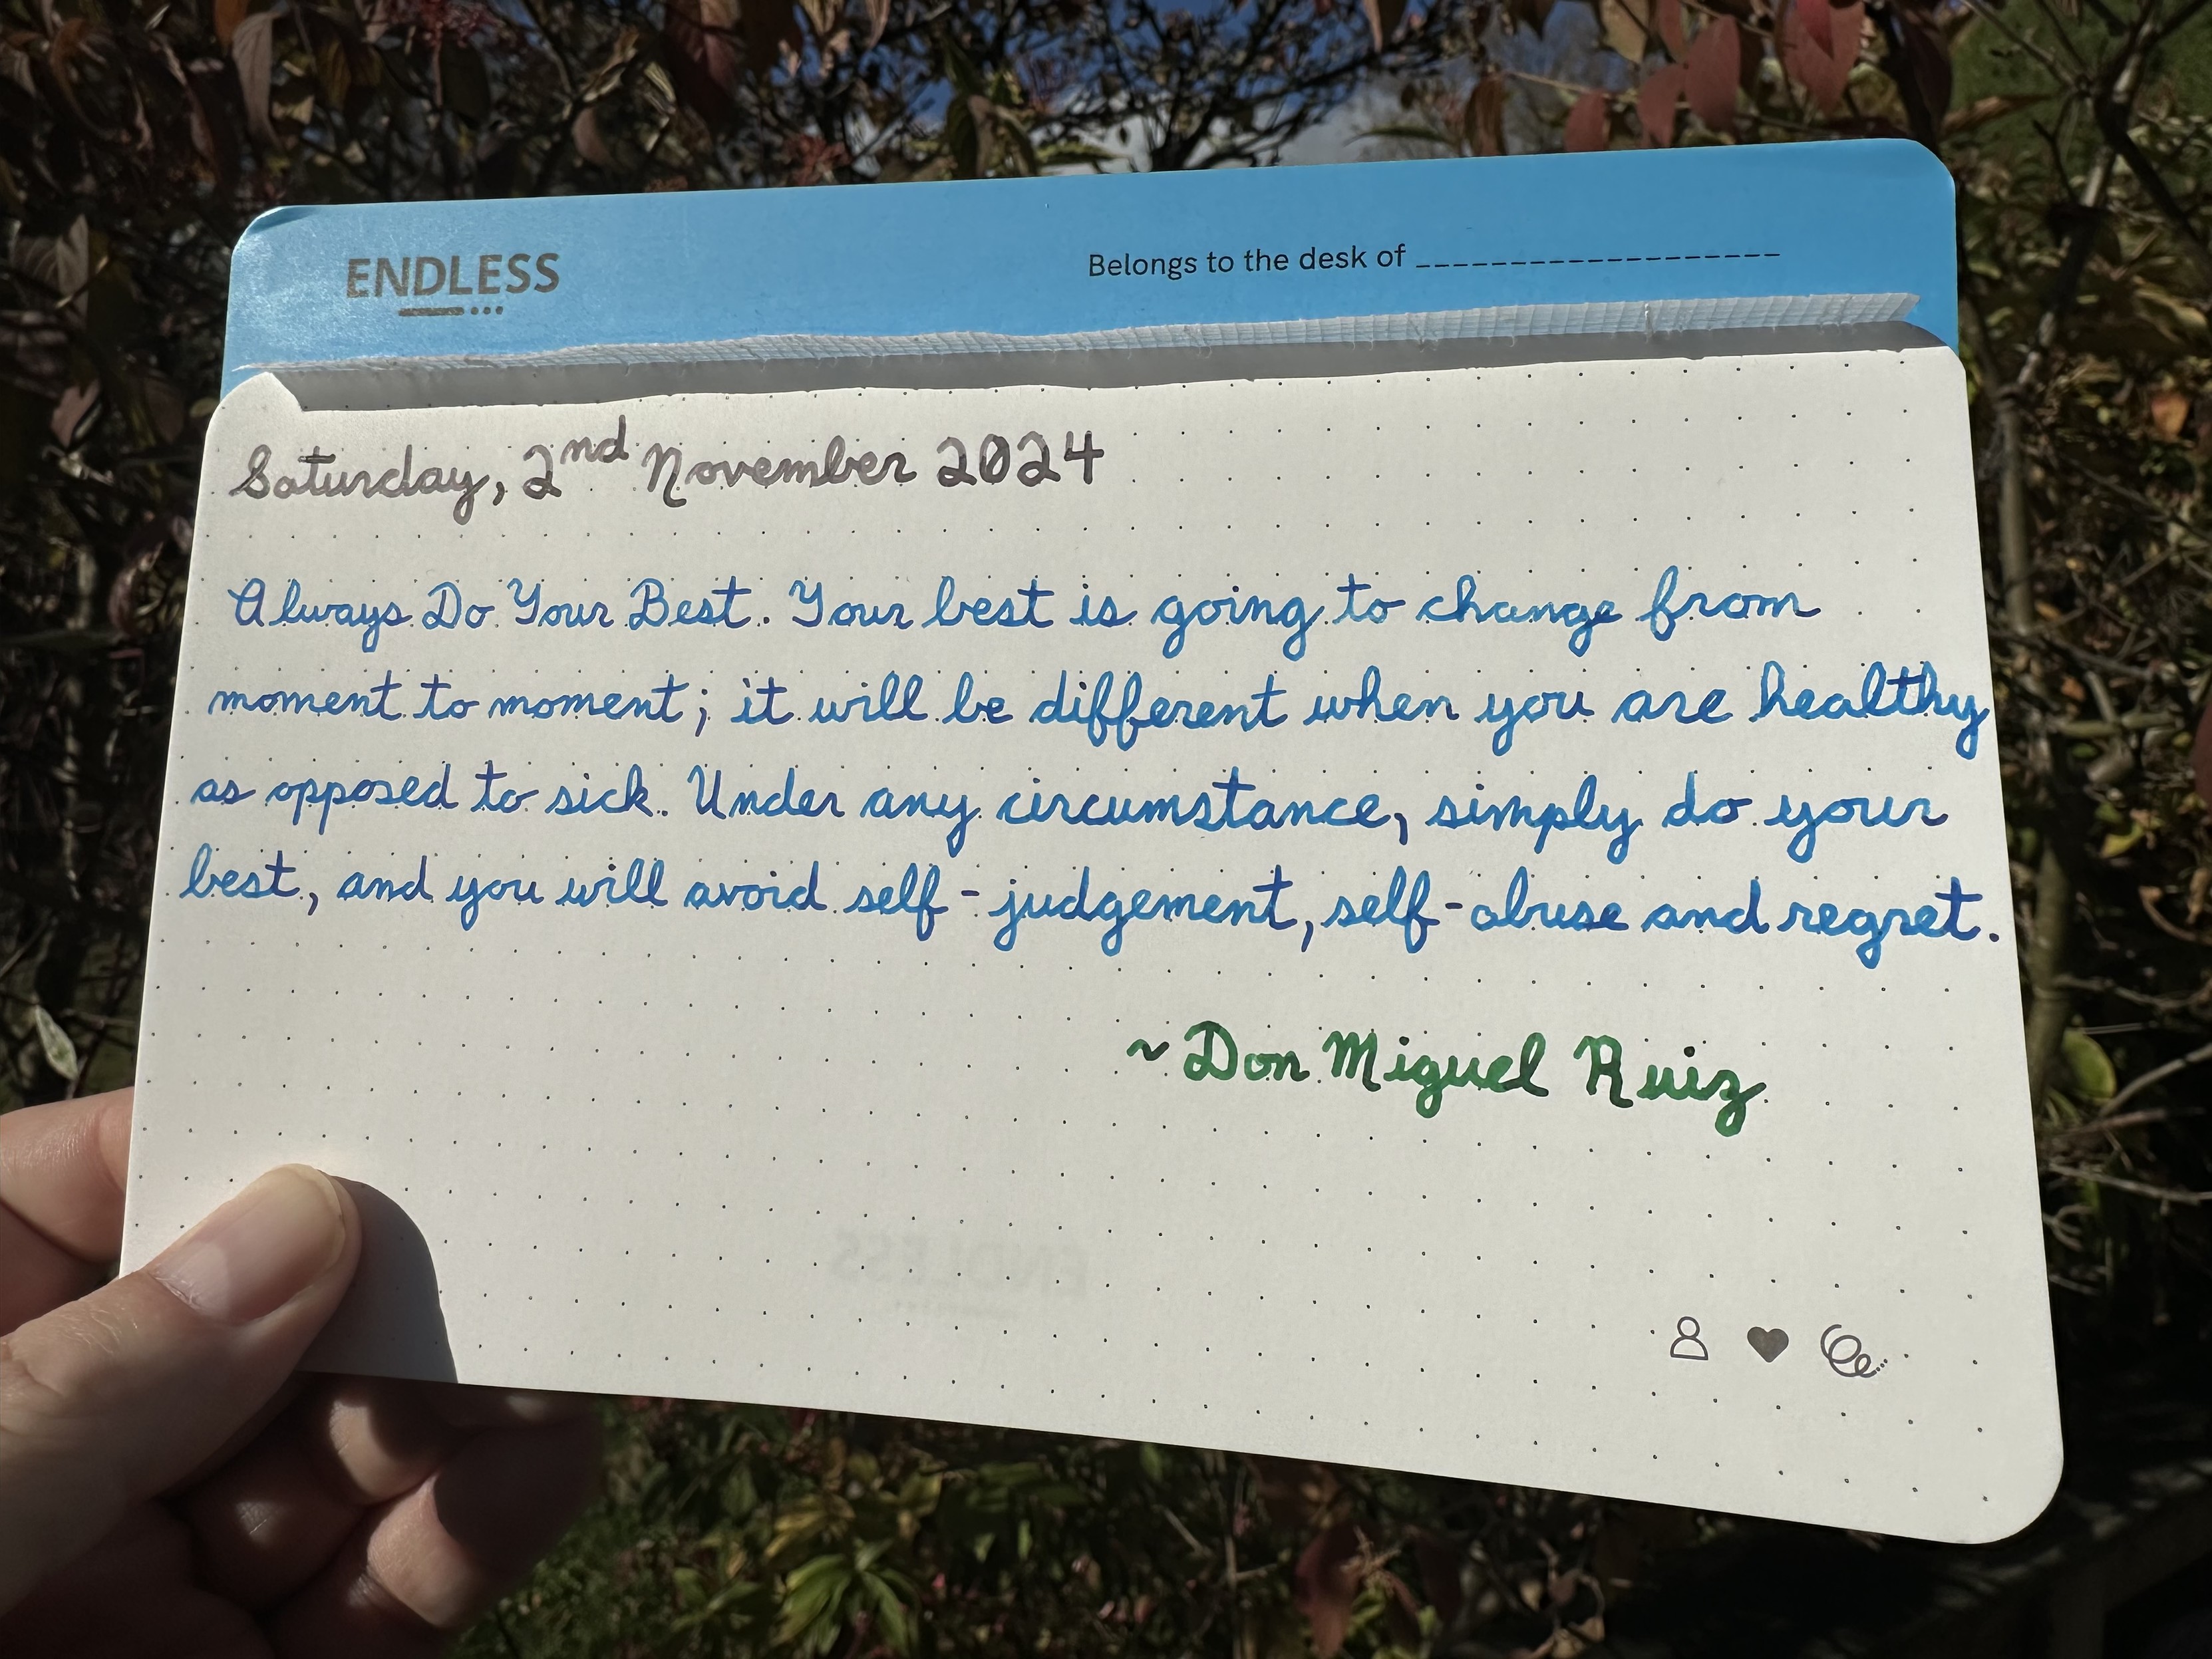 ENDLESS
Belongs to the desk of ___________________
Saturday, 2nd November 2024
Always Do Your Best. Your best is going to change from
moment to moment; it will be different when you are healthy
as opposed to sick. Under any circumstance, simply do your
best, and you will avoid self-judgement, self-abuse and regret.
~ Don Miguel Ruiz
ENDLESS